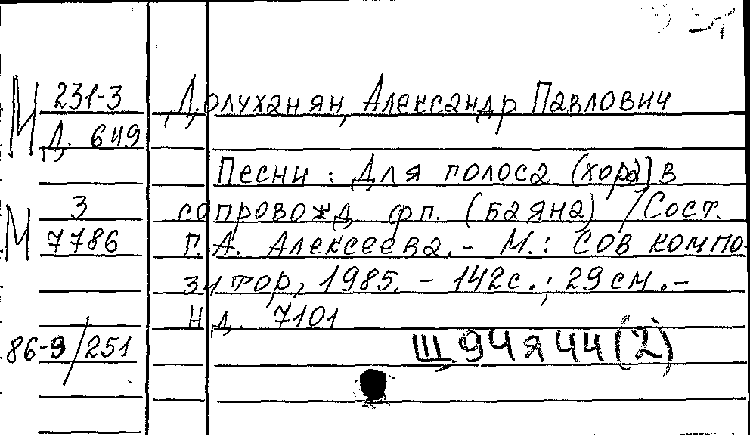 М 231-3
Д. 649
Долуханян, Александр Павлович
Песни : Для голоса (хора) в
М 3
7786
сопровожд. фп. (баяна) / Сост.
Г. А. Алексеева. - М.: Сов компо-
зитор, 1985. - 142с. ; 29см. -
Н.д. 7101
86-9/251
Щ94я44(2)